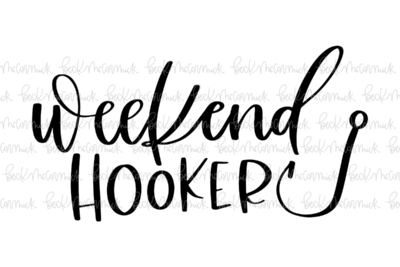 weekend
HOOKER